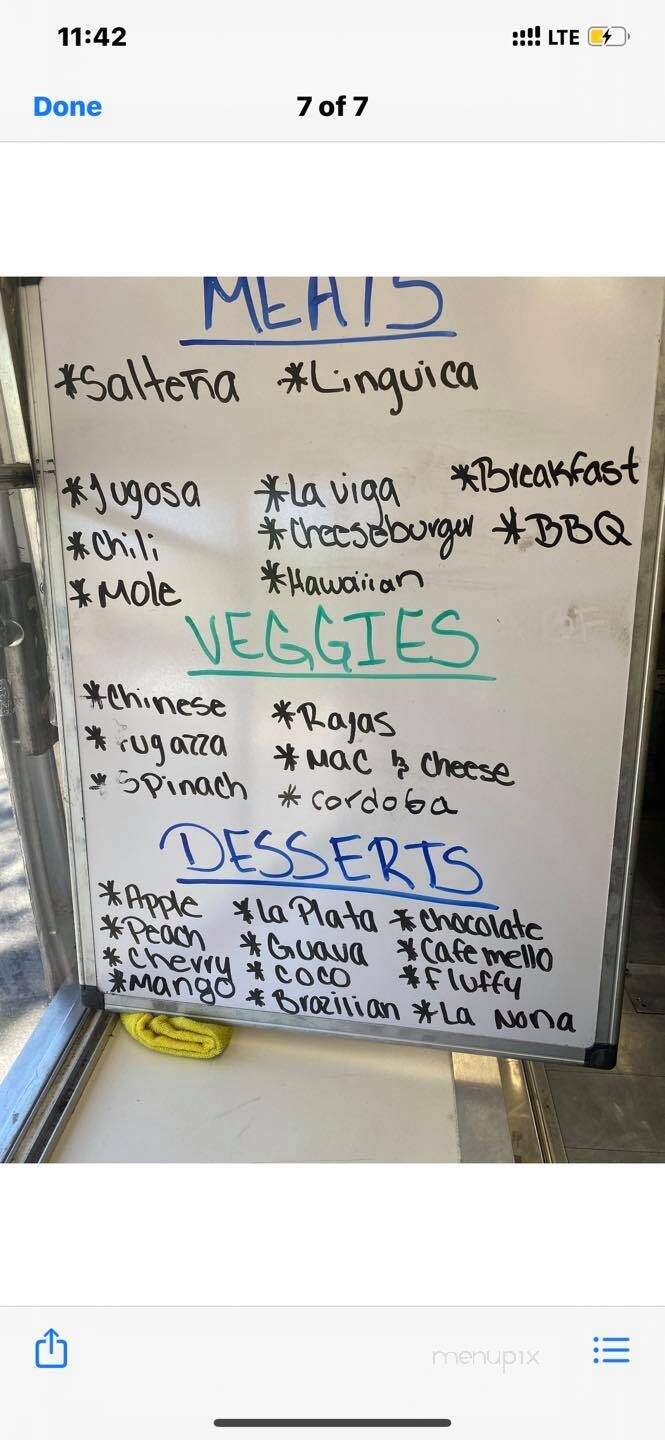 11:42 LTE
Done 7 of 7
MEATS
*Salteña *Linguica
*Jugosa *La viga *Breakfast
*Chili *Cheeseburger *BBQ
*Mole *Hawaiian
VEGGIES
*Chinese *Rajas
*rugazza *Mac & cheese
*Spinach *cordoba
DESSERTS
*Apple *La Plata *Chocolate
*Peach *Guava *Cafe mello
*Cherry *Coco *Fluffy
*Mango *Brazilian *La Nona
menupix